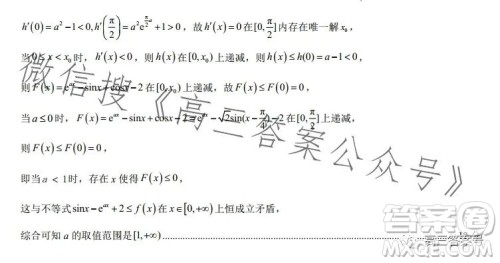 h'(0)=a²-1<0,h'(π/2)=a²e^{π/2 a}+1>0，故h'(x)=0在[0,π/2]内存在唯一解x₀，
当0≤x<x₀时，h'(x)<0，则h(x)在[0,x₀)上递减，则h(x)≤h(0)=a-1<0，
则F(x)=e^{ax}-sinx+cosx-2在[0,x₀)上递减，故F(x)≤F(0)=0，
当a≤0时，F(x)=e^{ax}-sinx+cosx-2=e^{ax}-√2sin(x-π/4)-2在[0,π/2]上递减，
则F(x)≤F(0)=0，
即当a<1时，存在x使得F(x)≤0，
这与不等式sinx-e^{ax}+2≤f(x)在x∈[0,+∞)上恒成立矛盾，
综合可知a的取值范围是[1,+∞)
微信搜《高三答案公众号》
答案圈